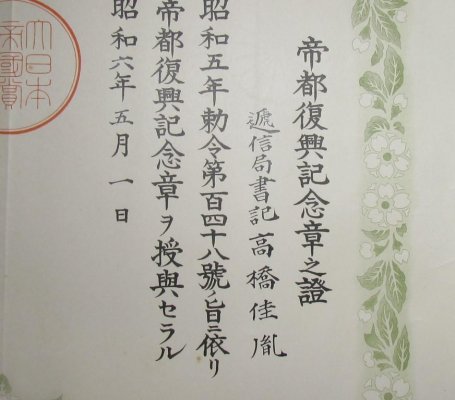 帝都復興記念章之證
遞信局書記高橋佳胤
昭和五年勅令第百四十八號ノ旨ニ依リ
帝都復興記念章ヲ授與セラル
昭和六年五月一日
大日本
帝國賞